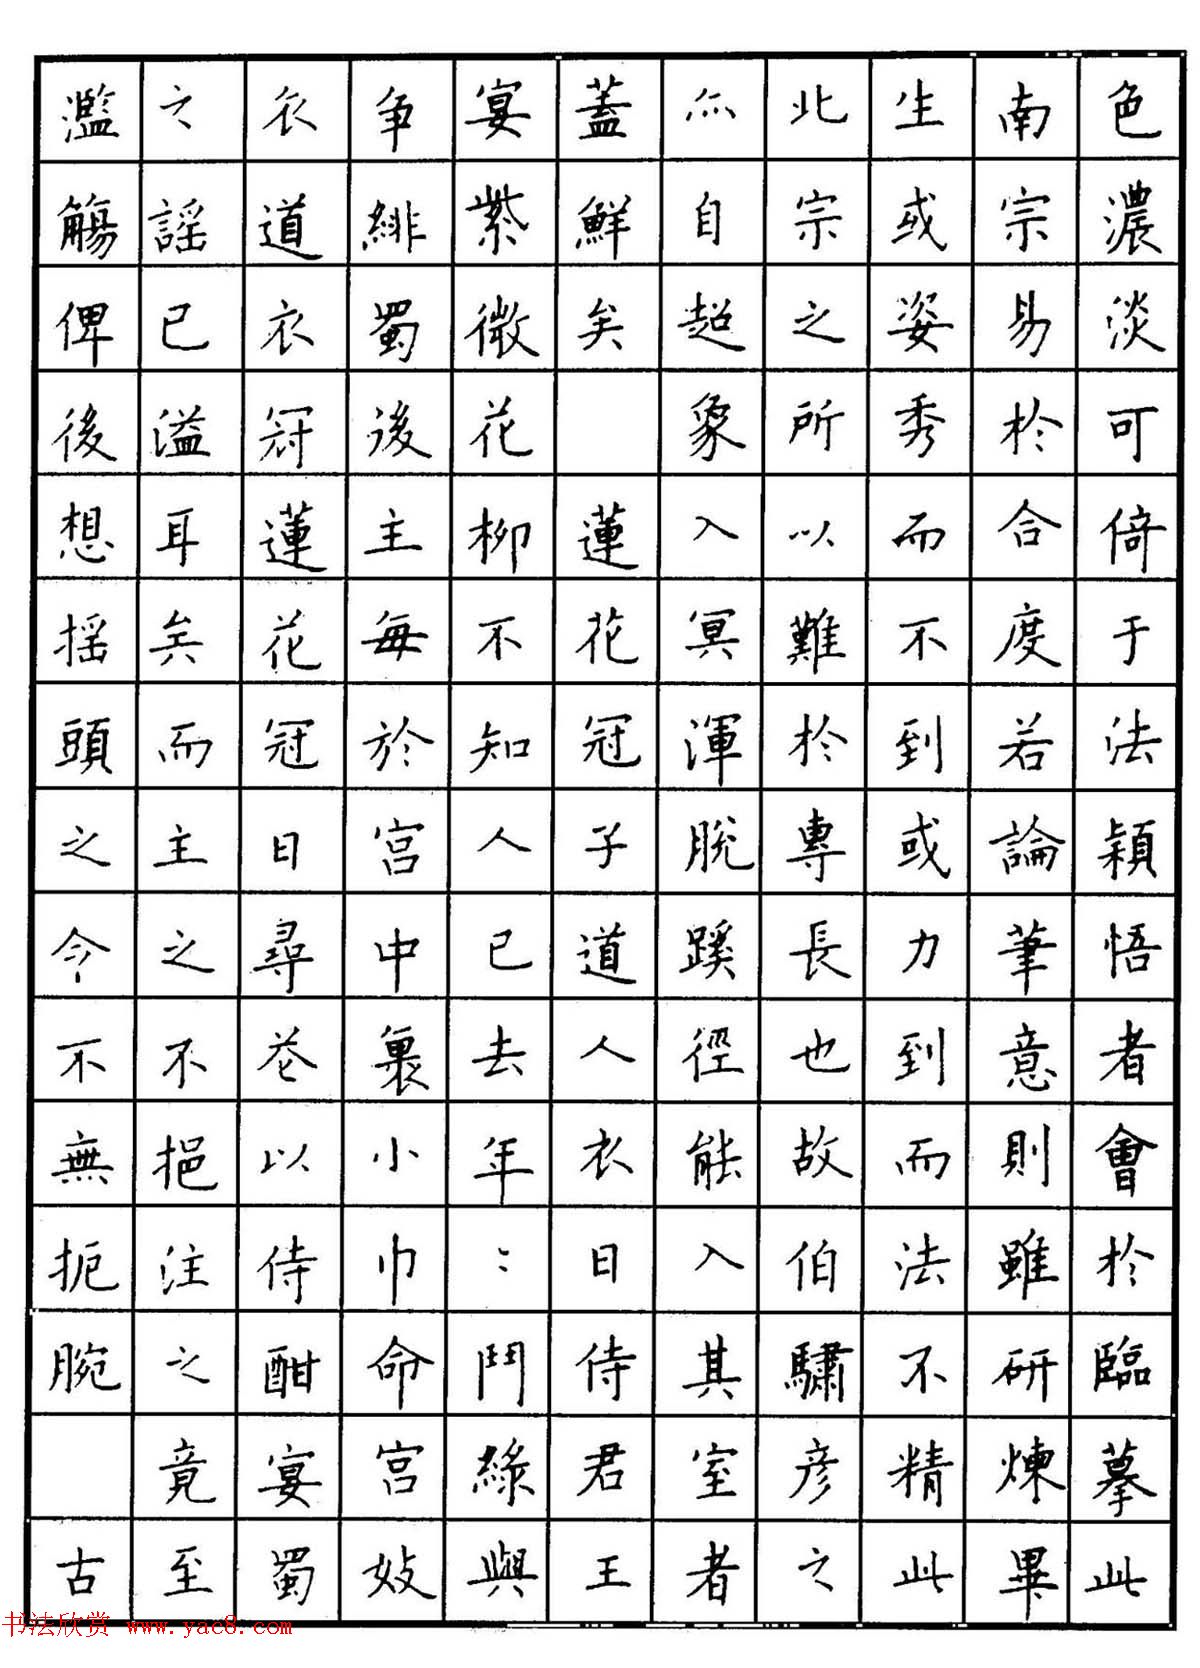 色濃淡可倚于法穎悟者會於臨摹此
南宗易於合度若論筆意則雖研煉畢
生或姿秀而不到或力到而法不精此
北宗之所以難於專長也故伯驌彥之
亦自超象入冥渾脫蹊徑能入其室者
蓋鮮矣 蓮花冠子道人衣日侍君王
宴紫微花柳不知人已去年〻鬥綠與
争緋蜀後主每於宮中裹小巾命宮妓
衣道衣冠蓮花冠日尋花以侍酣宴蜀
之謠已溢耳矣而主之不挹注之竟至
濫觴俾後想摇頭之令不無扼腕 古
书法欣赏 www.yac8.com